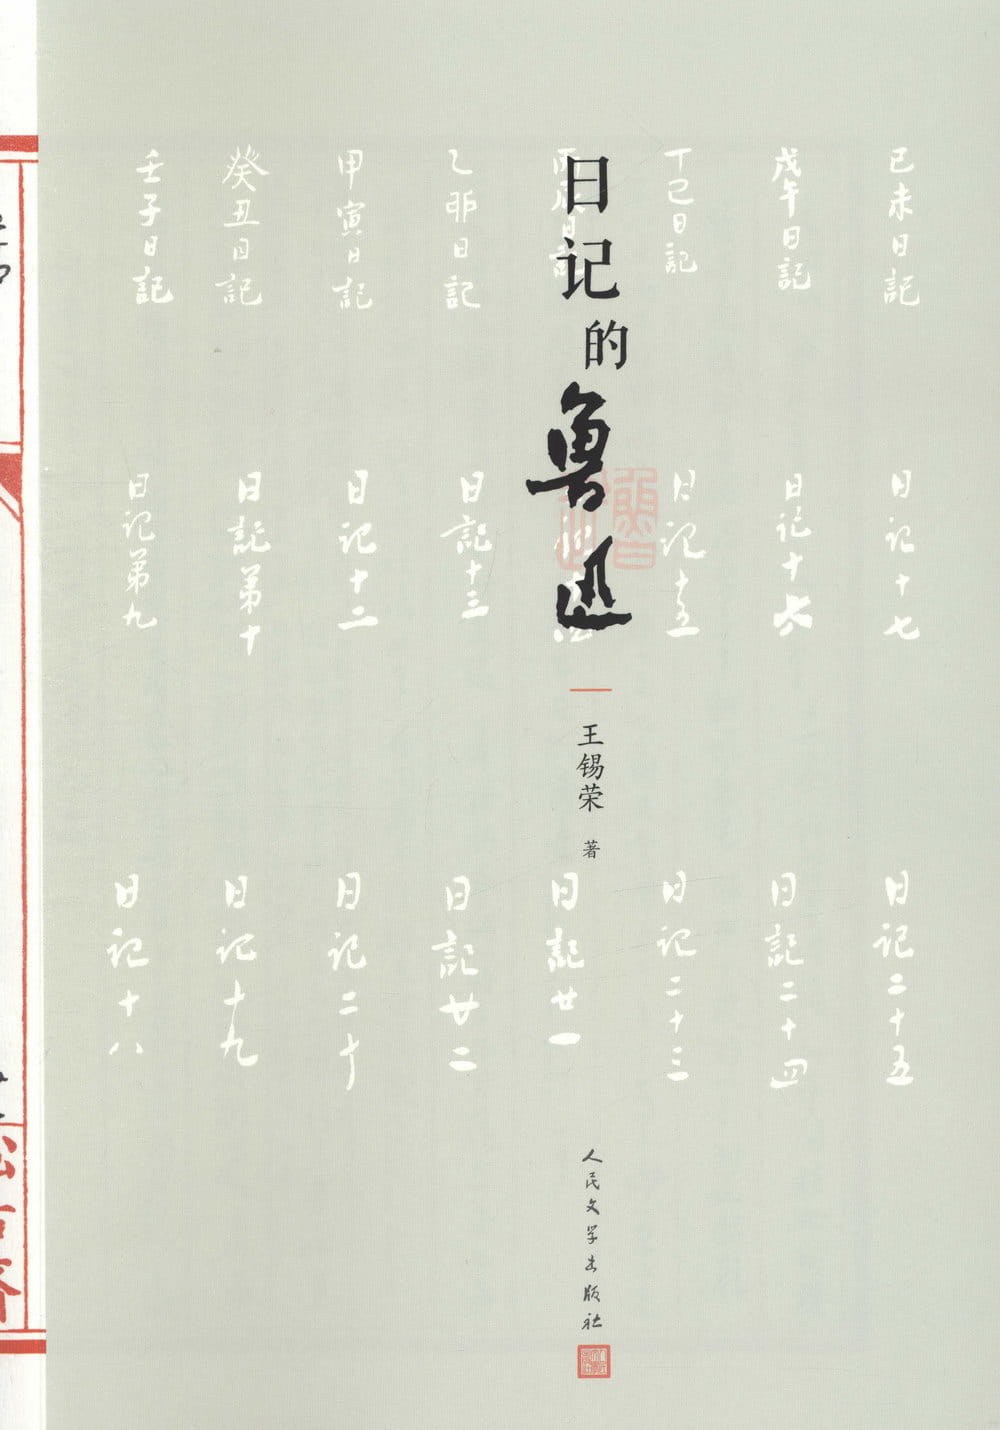 日记的鲁迅
王锡荣 著
人民文学出版社
壬子日記
癸丑日記
甲寅日記
乙卯日記
丙辰日記
丁巳日記
戊午日記
己未日記
日记第九
日記第十
日记十二
日記十三
日记十五
日记十六
日记十七
日记十八
日记十九
日记二十
日記廿二
日記廿一
日记二十三
日記二十四
日记二十五